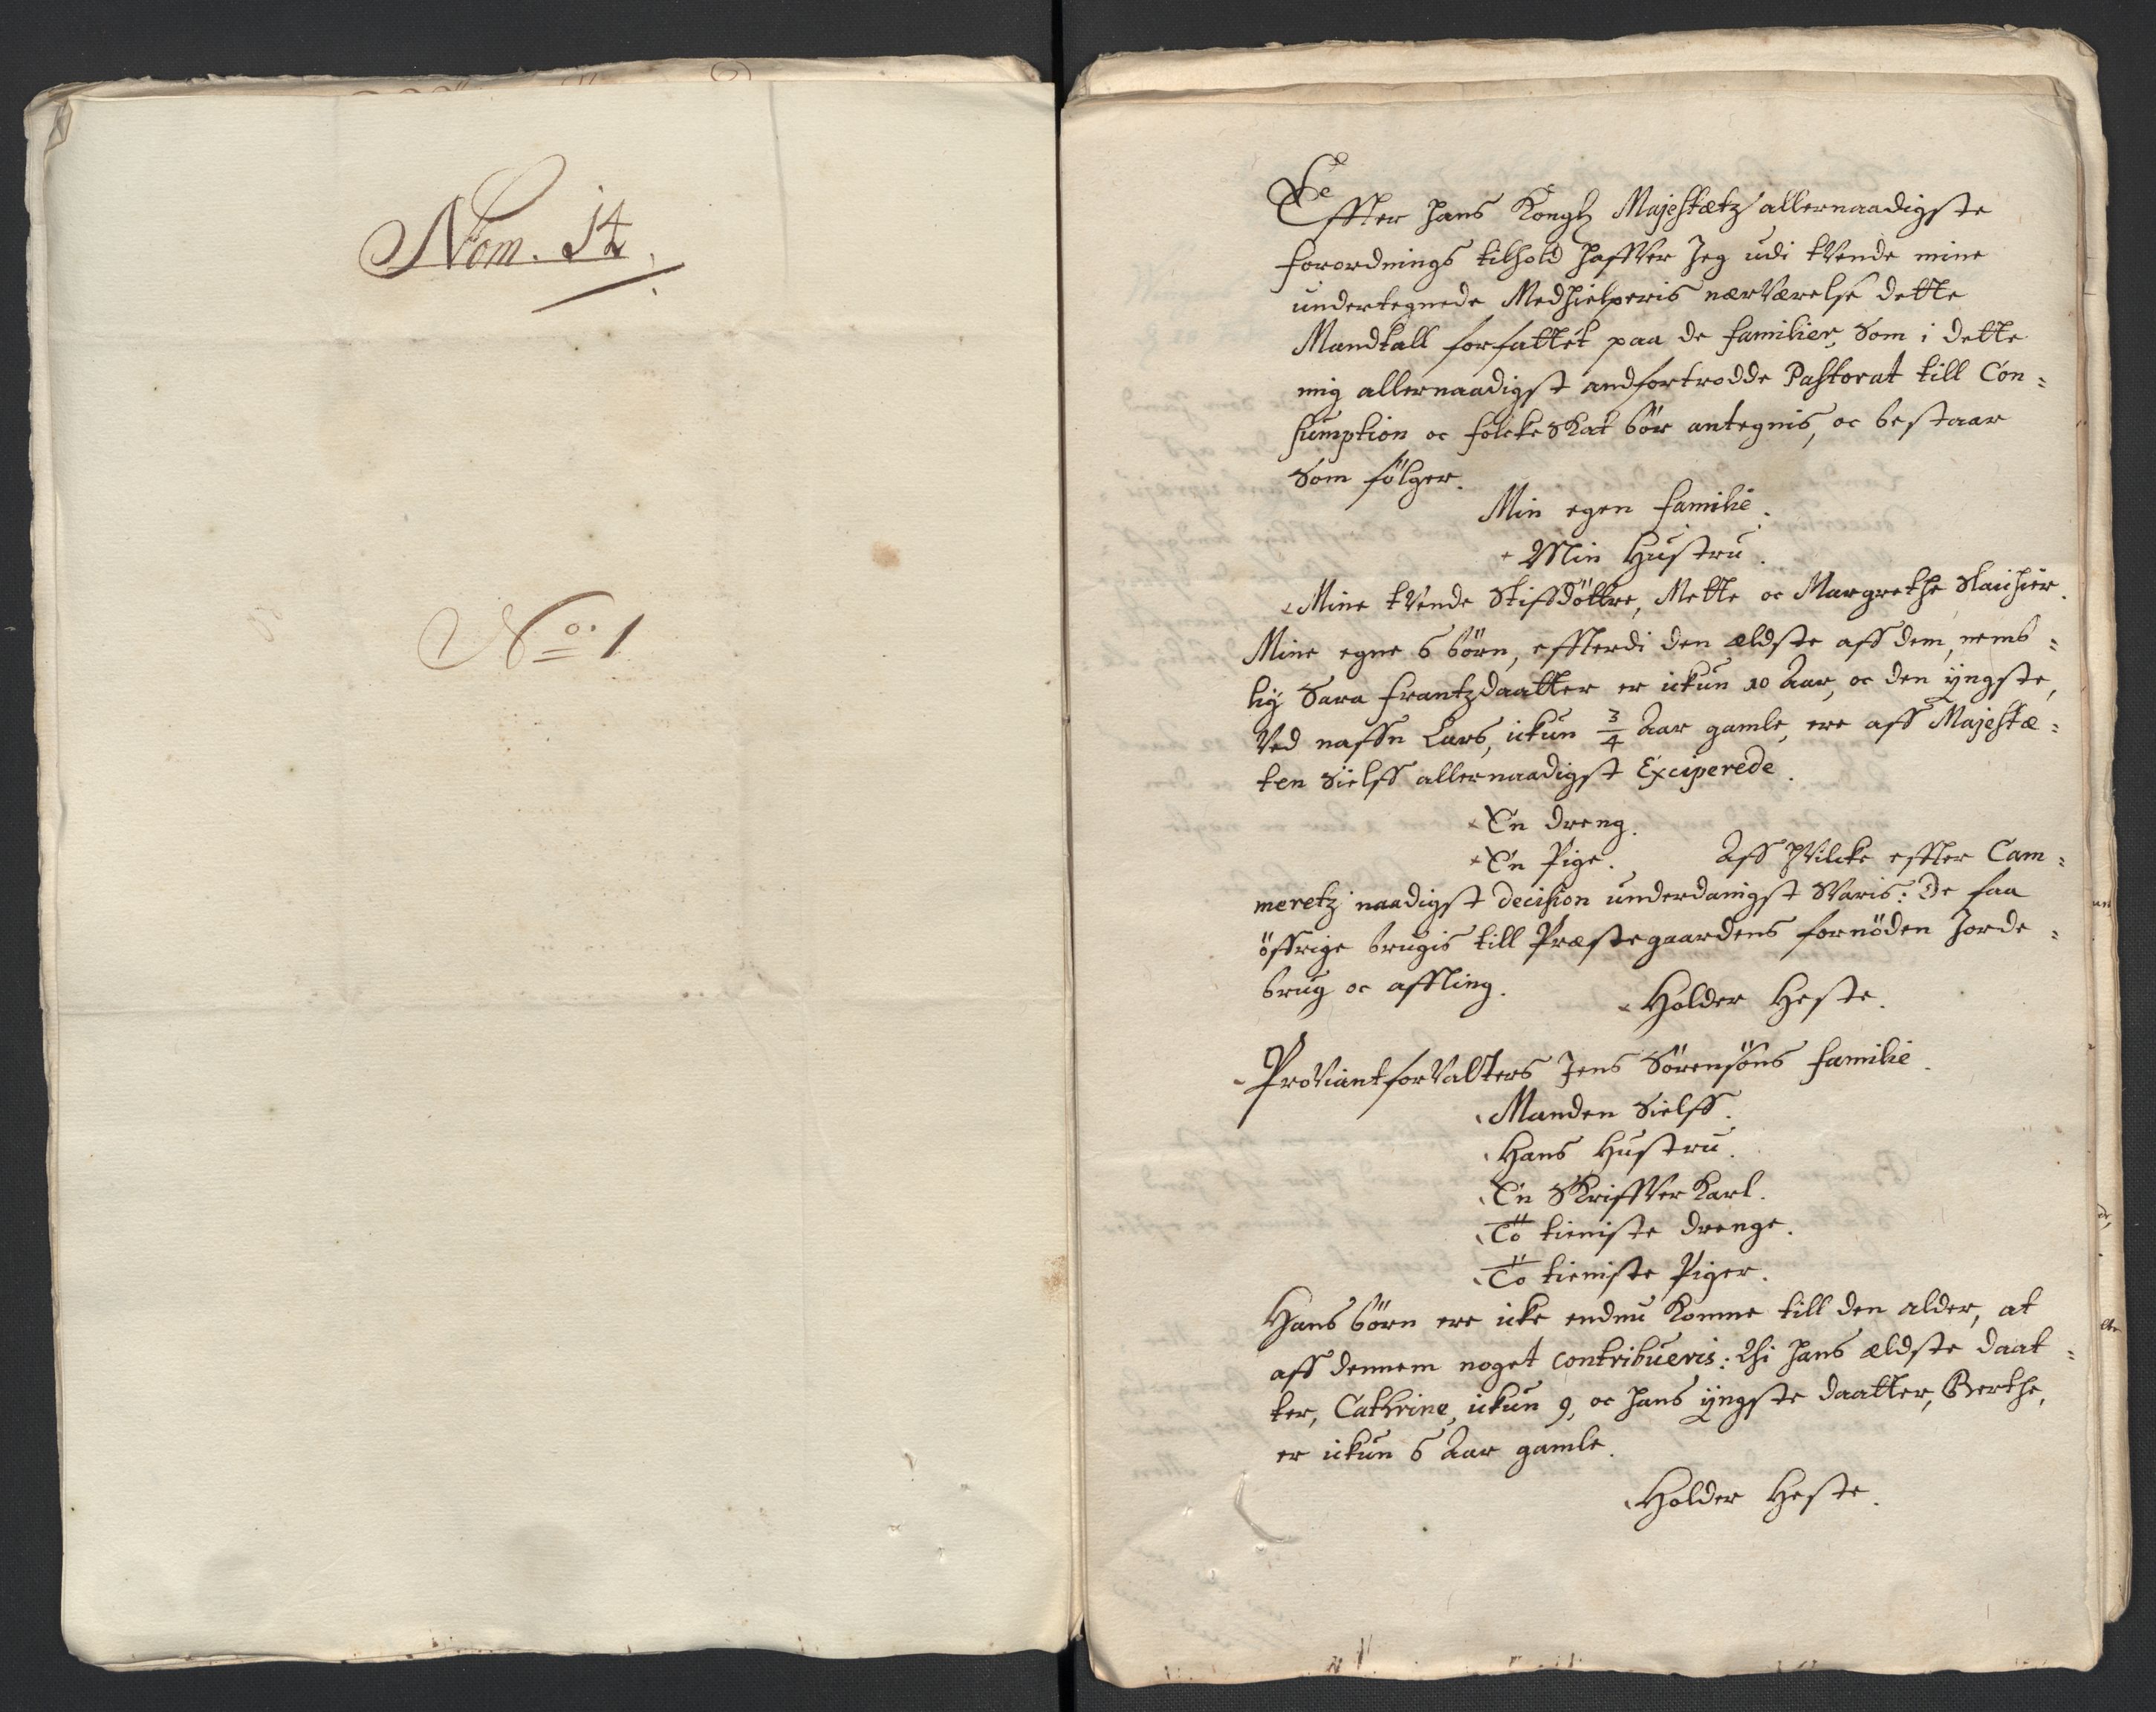 Nom. 14.
No. 1
Effter hans Kongl Majestætz allernaadigste
forordnings tilhold haffver Jeg udi tvende mine
undertegnede Medhielperis nærværelse dette
Mandtall forfattet paa de familier, som i dette
mig allernaadigst andfortrodde Pastorat till Con=
sumption oc folckeskat bör antegnis, oc bestaar
som fölger.
Min egen familie.
Min Hustru.
Mine tvende Stifsdöttre, Mette oc Margrethe
Mine egne 6 börn, effterdi den ældste aff dem, nemb=
lig Sara Frantzdaatter er ickun 10 Aar, oc den yngste,
ved naffn Lars, ickun 3/4 Aar gamle, ere aff Majestæ=
ten sielff allernaadigst Exciperede.
En dreng.
En Pige. Aff hvilcke effter Cam=
meretz naadigst decision underdanigst svaris: De faa
öffrige brugis till Præstegaardens fornöden Jorde=
brug oc affling.
Holder Heste.
Proviantforvalters Jens Sörensöns familie.
Manden sielff.
Hans Hustru.
En Skriffver Karl.
Tö tieniste drenge.
Tö tieniste Piger.
Hans börn ere icke endnu komne till den alder, at
aff dennem noget contribueris: Thi hans ældste daat=
ter, Cathrine, ickun 9, oc hans yngste daatter, Berthe,
er ickun 6 Aar gamle.
Holder Heste.